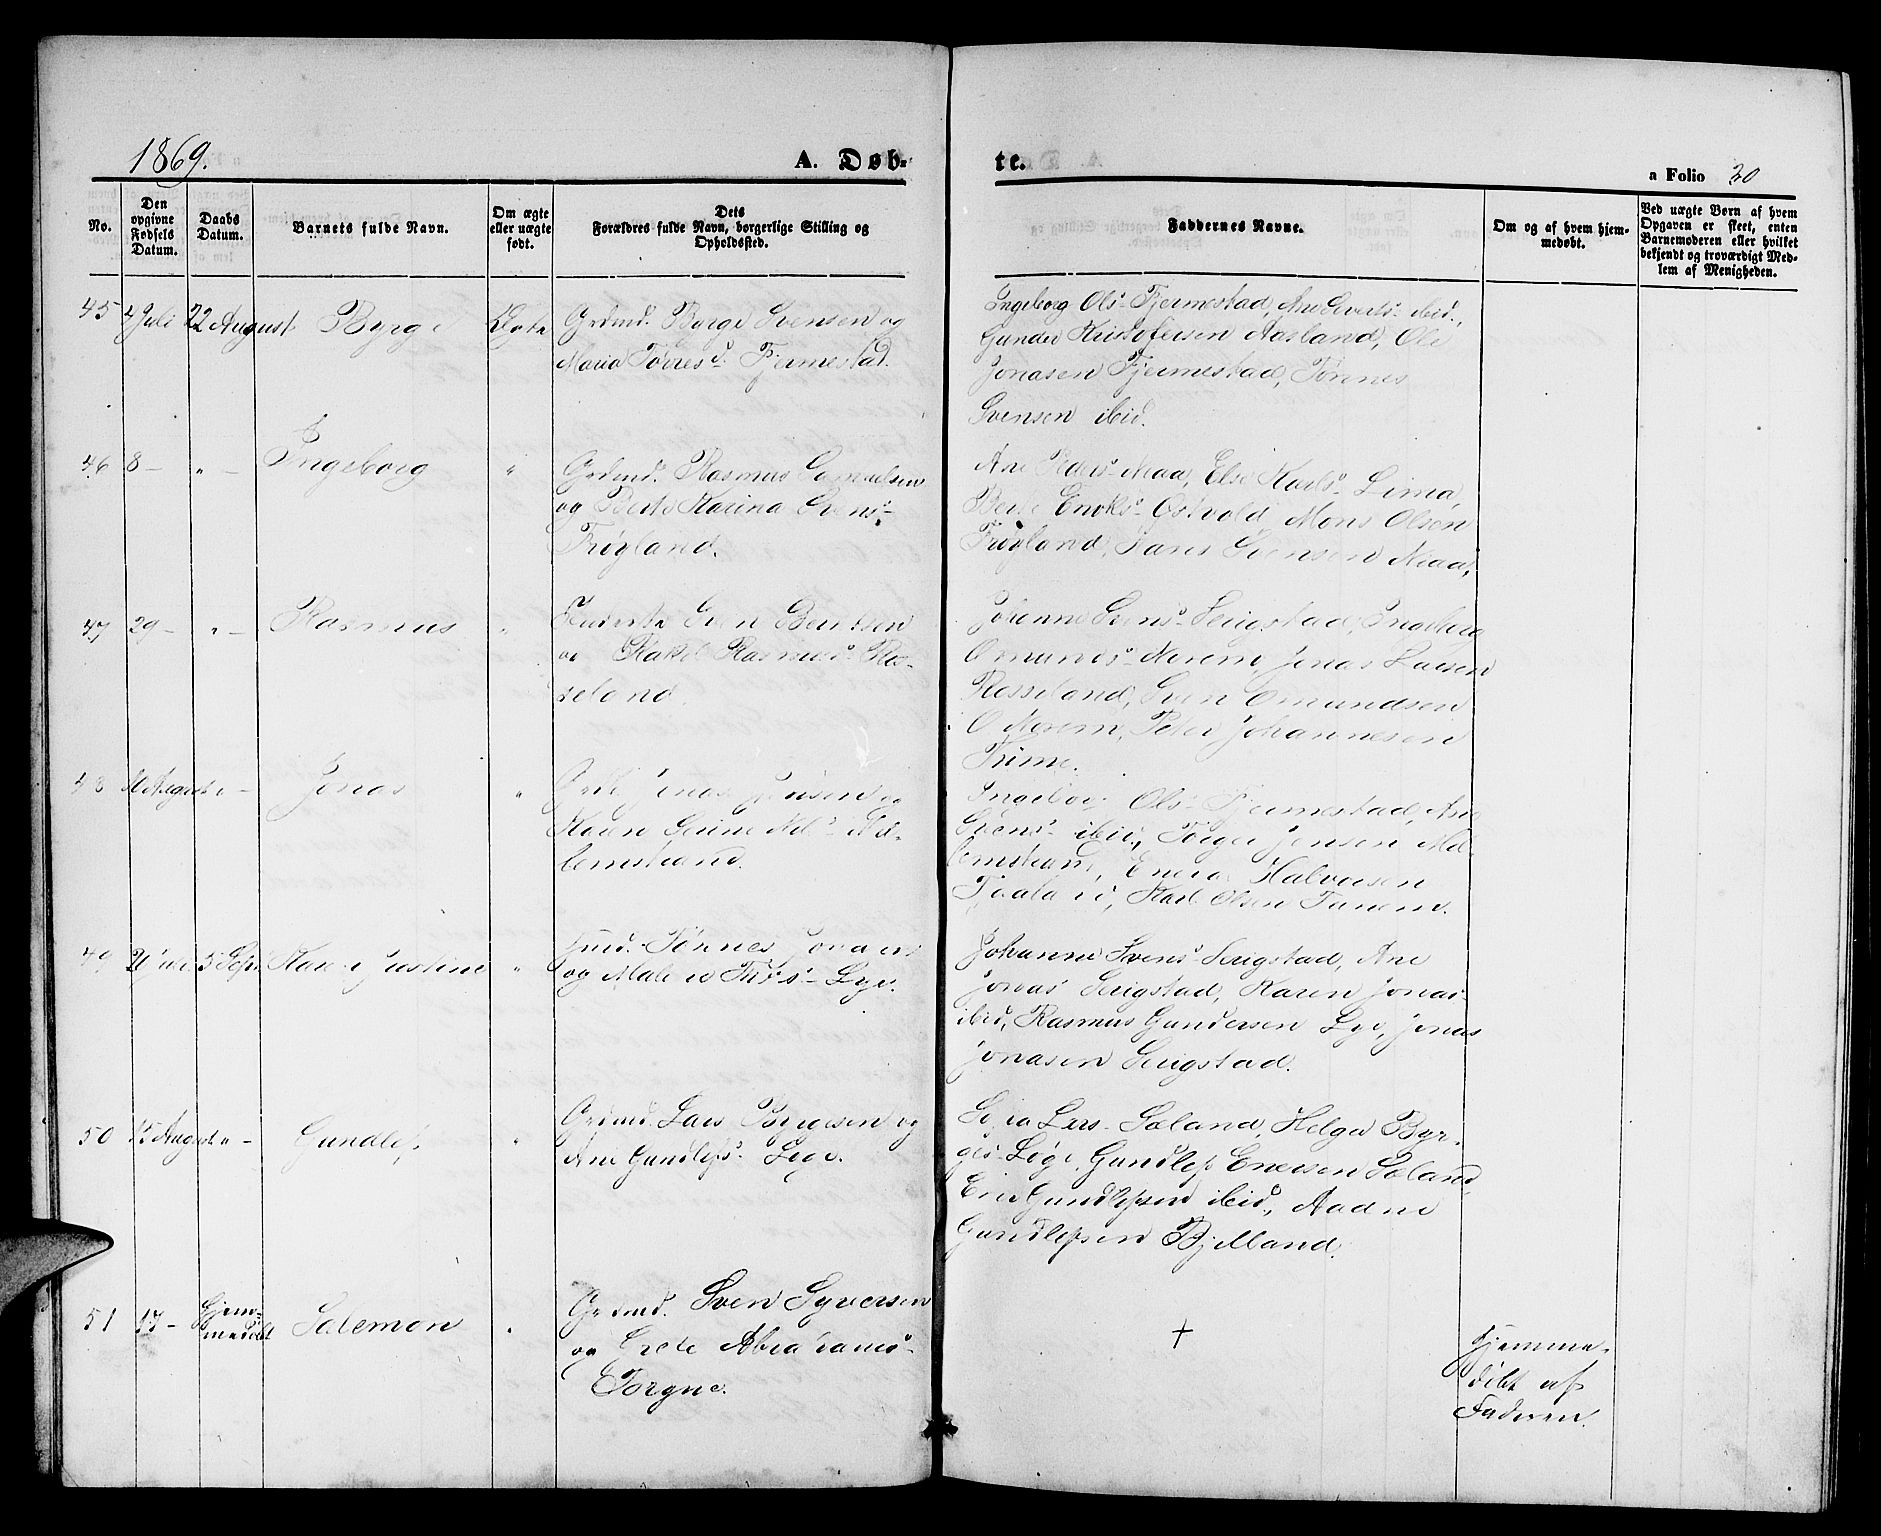 1869.
A. Døb-
te.
a Folio 30
No.
Den opgivne Fødsels Datum.
Daabs Datum.
Barnets fulde Navn.
Om ægte eller uægte født.
Dets Forældres fulde Navn, borgerlige Stilling og Opholdssted.
Faddernes Navne.
Om og af hvem hjemmedøbt.
Ved uægte Børn af hvem Opgaven er skeet, enten Barnemoderen eller hvilket bekjendt og troværdigt Medlem af Menigheden.
45 Juli 22 August Byrge Ægte
Grdmd. Byrge Svensen og
Maria Tørres d. Fjermestad.
Ingeborg Ols- Fjermestad, Ane Severts- ibid.,
Gunder Kristofersen Aasland, Ole
Jonasen Fjermestad, Tønnes
Svensen ibid.
46 8 - " - Ingeborg "
Grdmd. Rasmus Samuelsen
og Berte Karina Svens-
Frøyland.
Ane Peders- Maa, Else Karls- Lima,
Berte Enoks- Østvold, Mons Olsen
Frøyland, Svensen
47 29 - " - Rasmus "
Sven Bentsen
og Rakel Rasmus- Ros-
seland
Johanne Svens- Serigstad, Ingeborg
Omunds- Nerem, Jonas Larsen
Rosseland, Sven Omundsen
Nerem, Peter Johannesen
Trime.
48 10 August " - Jonas "
Jonas Jensen og
Karen Serine
lemstrand.
Ingeborg Ols- Fjermestad, Ane
Svens- ibid., Torger Jensen
lemstrand, Halvorsen
Tjaaland, Karl Olsen Tunem.
49 5 Sept. Karen Justine "
Tønnes Jonasen
og Malene - Lye.
Johanne Svens- Serigstad, Ane
Jonas- Serigstad, Karen Jonas-
ibid, Rasmus Gundersen Lye, Jonas
Jonasen Serigstad.
50 15 August " - Gundlef "
Grdmd. Lars Byrgesen og
Ane Gundlefs- Lye.
Lars- Sæland, Helga Byr-
ges- Løge, Gundlef Enersen Sæland,
Gundlefsen ibid., Aadne
Gundlefsen Bjelland.
51 17 - Hjem-
medøbt Salemon "
Grdmd. Sven Syversen
og Grete Abrahams-
Torgne.
†
Hjemme-
døbt af
Faderen.